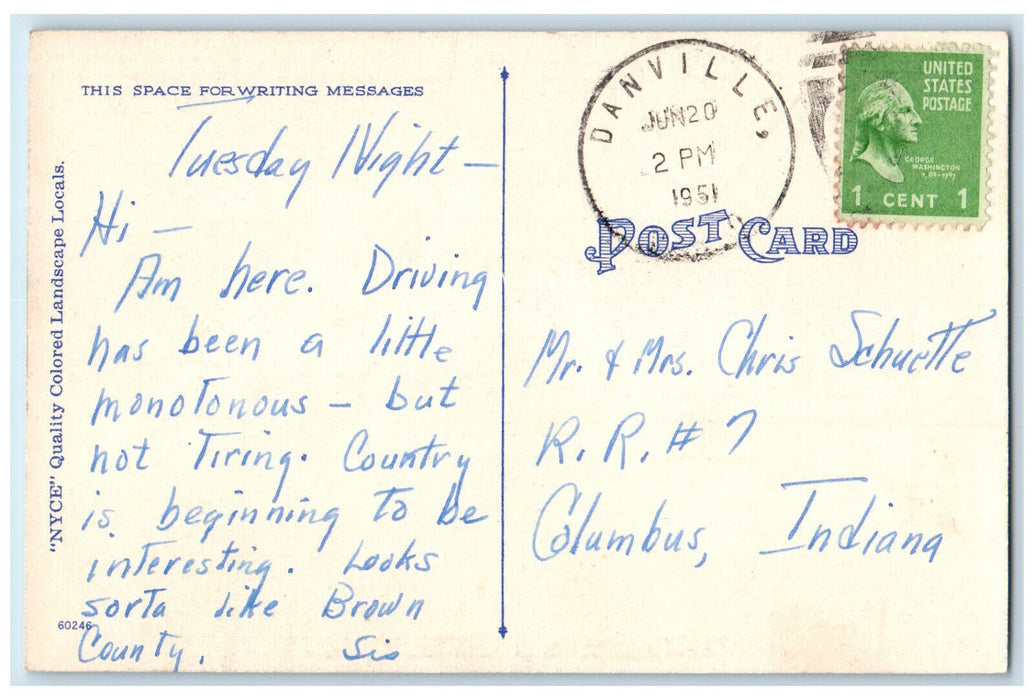 THIS SPACE FOR WRITING MESSAGES
Tuesday Night —
Hi —
Am here. Driving
has been a little
monotonous — but
not Tiring. Country
is beginning to be
interesting. Looks
sorta like Brown
County. Sis
"NYCE" Quality Colored Landscape Locals.
60246
DANVILLE,
JUN 20
2 PM
1951
UNITED
STATES
POSTAGE
GEORGE
WASHINGTON
1 CENT 1
POST CARD
Mr. & Mrs. Chris Schuette
R. R. # 7
Columbus, Indiana